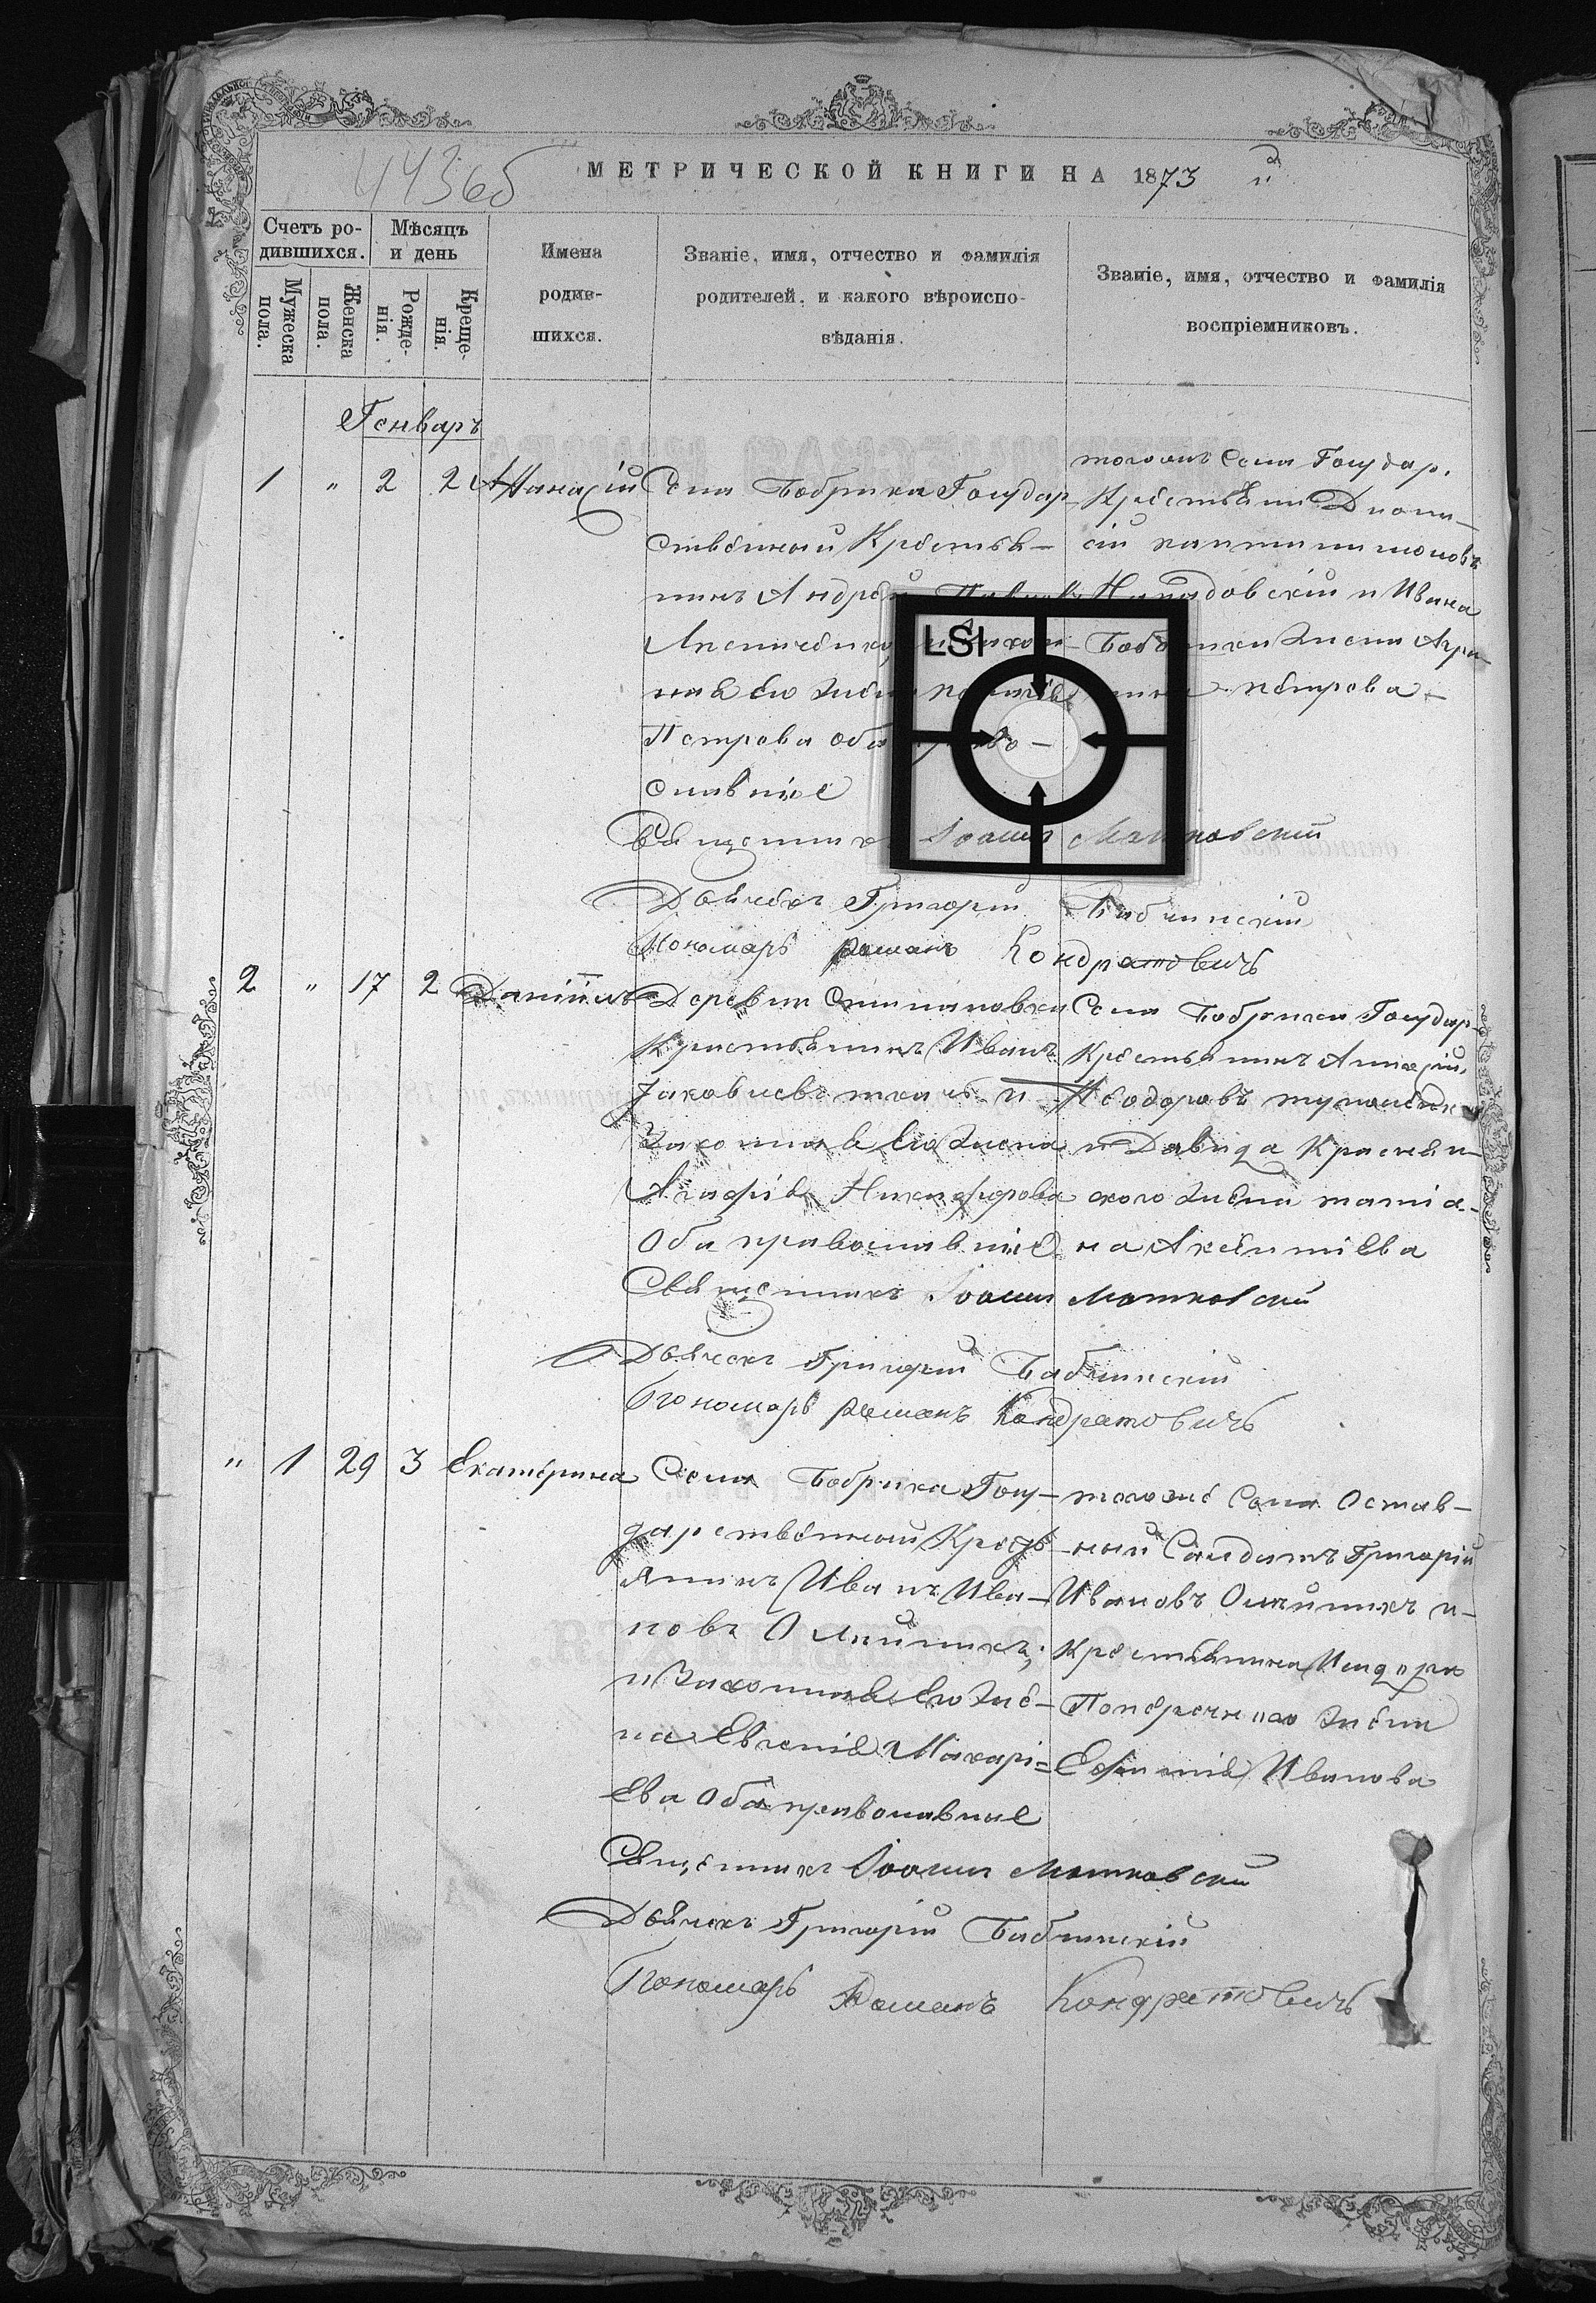 443об
МЕТРИЧЕСКОЙ КНИГИ НА 1873
Счетъ ро-
дившихся.
Мѣсяцъ
и день
Мужеска
пола.
Женска
пола.
Рожде-
нія.
Креще-
нія.
Имена
родив-
шихся.
Званіе, имя, отчество и фамилія
родителей, и какого вѣроиспо-
вѣданія.
Званіе, имя, отчество и фамилія
воспріемниковъ.
Генваръ
1 " 2 2 Афанасій
Села Бобрика Государ
ственный Крестья-
нинъ Андрей
LSI
ная его
Петрова оба
славные
тогожъ Села Государ.
Крестьяни Діони-
сій
и Ивана
Петрова
Священникъ Іоаннъ Матковскій
Дьячекъ Григорій Бабчинскій
Пономарь Романъ Кондратовичъ
2 " 17 2 Даніилъ
Деревни Степановки
Крестьянинъ Иванъ
Яковлевъ и
Законная его жена
Агафія Никифорова
Оба православные
Села Бобрика Государ-
Крестьянинъ
Феодоровъ
и Давида Красня
ского жена татіа-
на Аксентіева
Священникъ Іоаннъ Матковскій
Дьячекъ Григорій Бабчинскій
Пономарь Романъ Кондратовичъ
" 1 29 3 Екатерина
Села Бобрика Госу-
дарственный Кресть
янинъ Иванъ Ива-
новъ Олійникъ;
и Законная его же-
на Евгенія Макарі=
ева Оба православные
тогоже Села Остав-
ный Солдатъ Григорій
Ивановъ Олійникъ и-
Крестьянина Исидора
Поперечнаго жена
Евфимія Иванова
Священникъ Іоаннъ Матковскій
Дьячекъ Григорій Бабчинскій
Пономарь Романъ Кондратовичъ